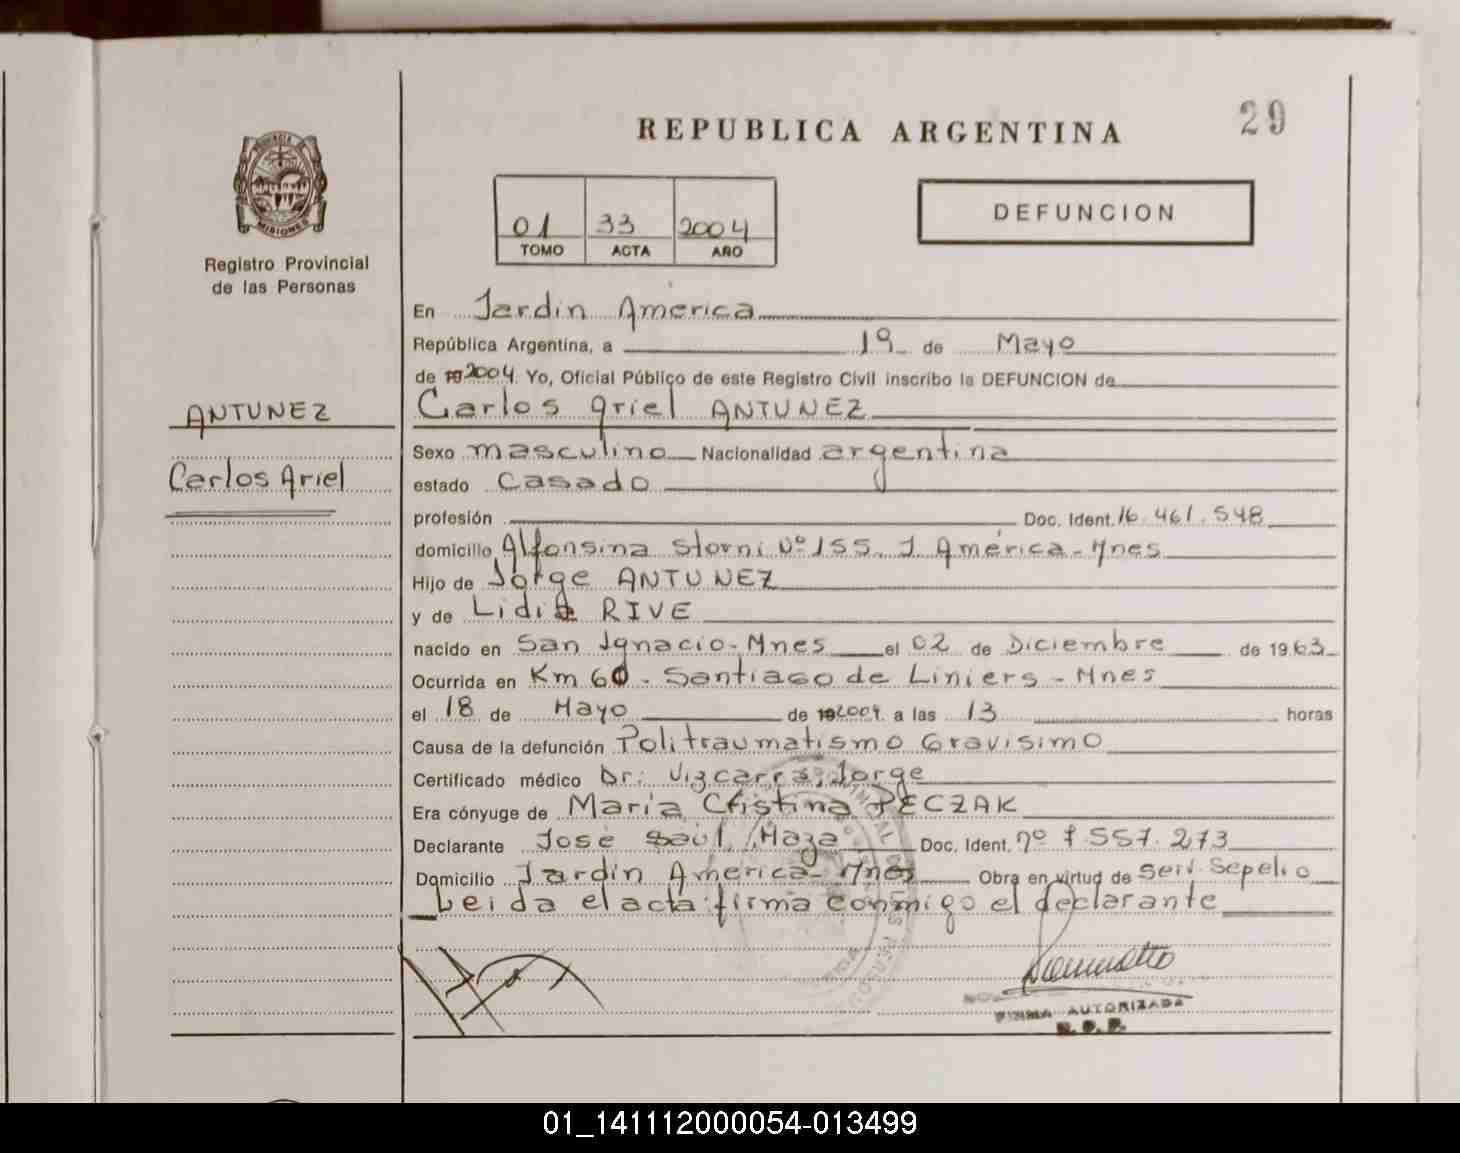 REPUBLICA ARGENTINA
29
PROVINCIA DE
MISIONES
Registro Provincial
de las Personas
01 33 2004
TOMO ACTA AÑO
DEFUNCION
ANTUNEZ
Carlos Ariel
En Jardin America
República Argentina, a 19 de Mayo
de 19 2004. Yo, Oficial Público de este Registro Civil inscribo la DEFUNCION de
Carlos Ariel ANTUNEZ
Sexo masculino Nacionalidad argentina
estado Casado
profesión Doc. Ident. 16.461.548
domicilio Alfonsina Storni Nº 155. J. América - Mnes
Hijo de Jorge ANTUNEZ
y de Lidia RIVE
nacido en San Ignacio - Mnes el 02 de Diciembre de 1963
Ocurrida en Km 60 - Santiago de Liniers - Mnes
el 18 de Mayo de 19 2004. a las 13 horas
Causa de la defunción Politraumatismo Gravisimo
Certificado médico Dr. Vizcarra, Jorge
Era cónyuge de Maria Cristina PECZAK
Declarante José Saúl Maza Doc. Ident. nº 7.557.273
Domicilio Jardin America - Mnes Obra en virtud de Serv. Sepelio
Leida el acta firma conmigo el declarante
FIRMA AUTORIZADA
R. P. P.
01_141112000054-013499